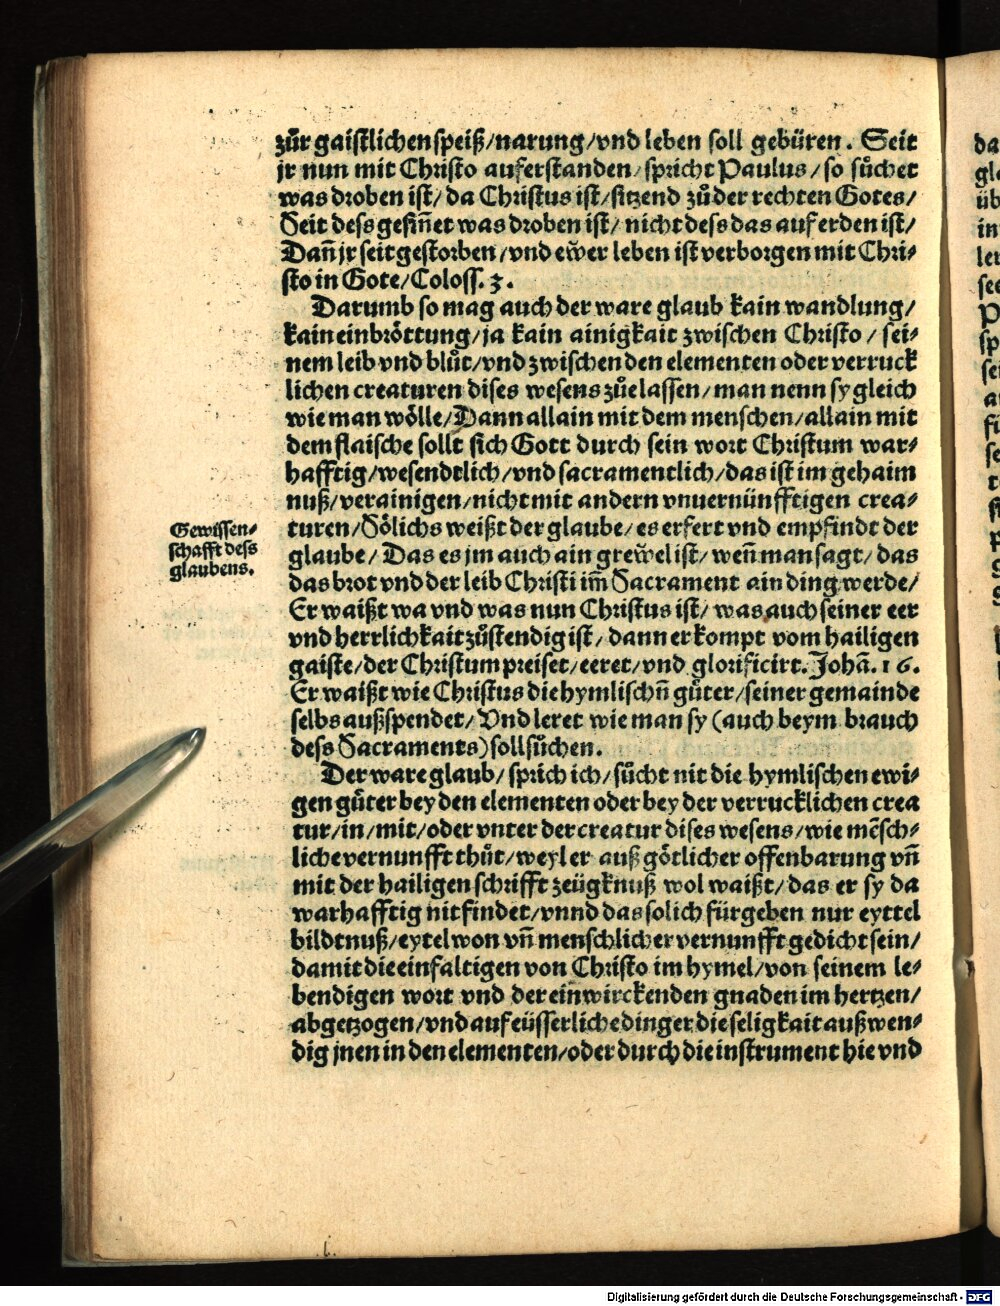 zůr gaistlichen speiß/narung/vnd leben soll gebüren. Seit
jr nun mit Christo auferstanden/spricht Paulus/so sůchet
was droben ist/da Christus ist/sitzend zů der rechten Gotes/
Seit dess gesiñet was droben ist/nicht dess das auf erden ist/
Dañ jr seit gestorben/vnd ewer leben ist verborgen mit Chri-
sto in Gote/Coloss. 3.
Darumb so mag auch der ware glaub kain wandlung/
kain einbröttung/ja kain ainigkait zwischen Christo/sei-
nem leib vnd blůt/vnd zwischen den elementen oder verruck
lichen creaturen dises wesens zůelassen/man nenn sy gleich
wie man wölle/Dann allain mit dem menschen/allain mit
dem flaische sollt sich Gott durch sein wort Christum war-
hafftig/wesendtlich/vnd sacramentlich/das ist im gehaim
nuß/verainigen/nicht mit andern vnuernünfftigen crea-
turen/Sölichs weißt der glaube/es erfert vnd empfindt der
glaube/Das es jm auch ain grewel ist/weñ man sagt/das
das brot vnd der leib Christi im̃ Sacrament ain ding werde/
Er waißt wa vnd was nun Christus ist/was auch seiner eer
vnd herrlichkait zůstendig ist/dann er kompt vom hailigen
gaiste/der Christum preiset/eeret/vnd glorificirt. Johã. 16.
Er waißt wie Christus die hymlischñ gůter/seiner gemainde
selbs außspendet/Vnd leret wie man sy (auch beym brauch
dess Sacraments) soll sůchen.
Der ware glaub/sprich ich/sůcht nit die hymlischen ewi-
gen gůter bey den elementen oder bey der verrucklichen crea
tur/in/mit/oder vnter der creatur dises wesens/wie mẽsch-
liche vernunfft thůt/weyl er auß götlicher offenbarung vñ
mit der hailigen schrifft zeügknuß wol waißt/das er sy da
warhafftig nit findet/vnnd das solich fürgeben nur eyttel
bildtnuß/eytel won vñ menschlicher vernunfft gedicht sein/
damit die einfaltigen von Christo im hymel/von seinem le-
bendigen wort vnd der einwirckenden gnaden im hertzen/
abgetzogen/vnd auf eüsserliche dinger die seligkait außwen-
dig jnen in den elementen/oder durch die instrument hie vnd
Gewissen-
schafft dess
glaubens.
Digitalisierung gefördert durch die Deutsche Forschungsgemeinschaft - DFG